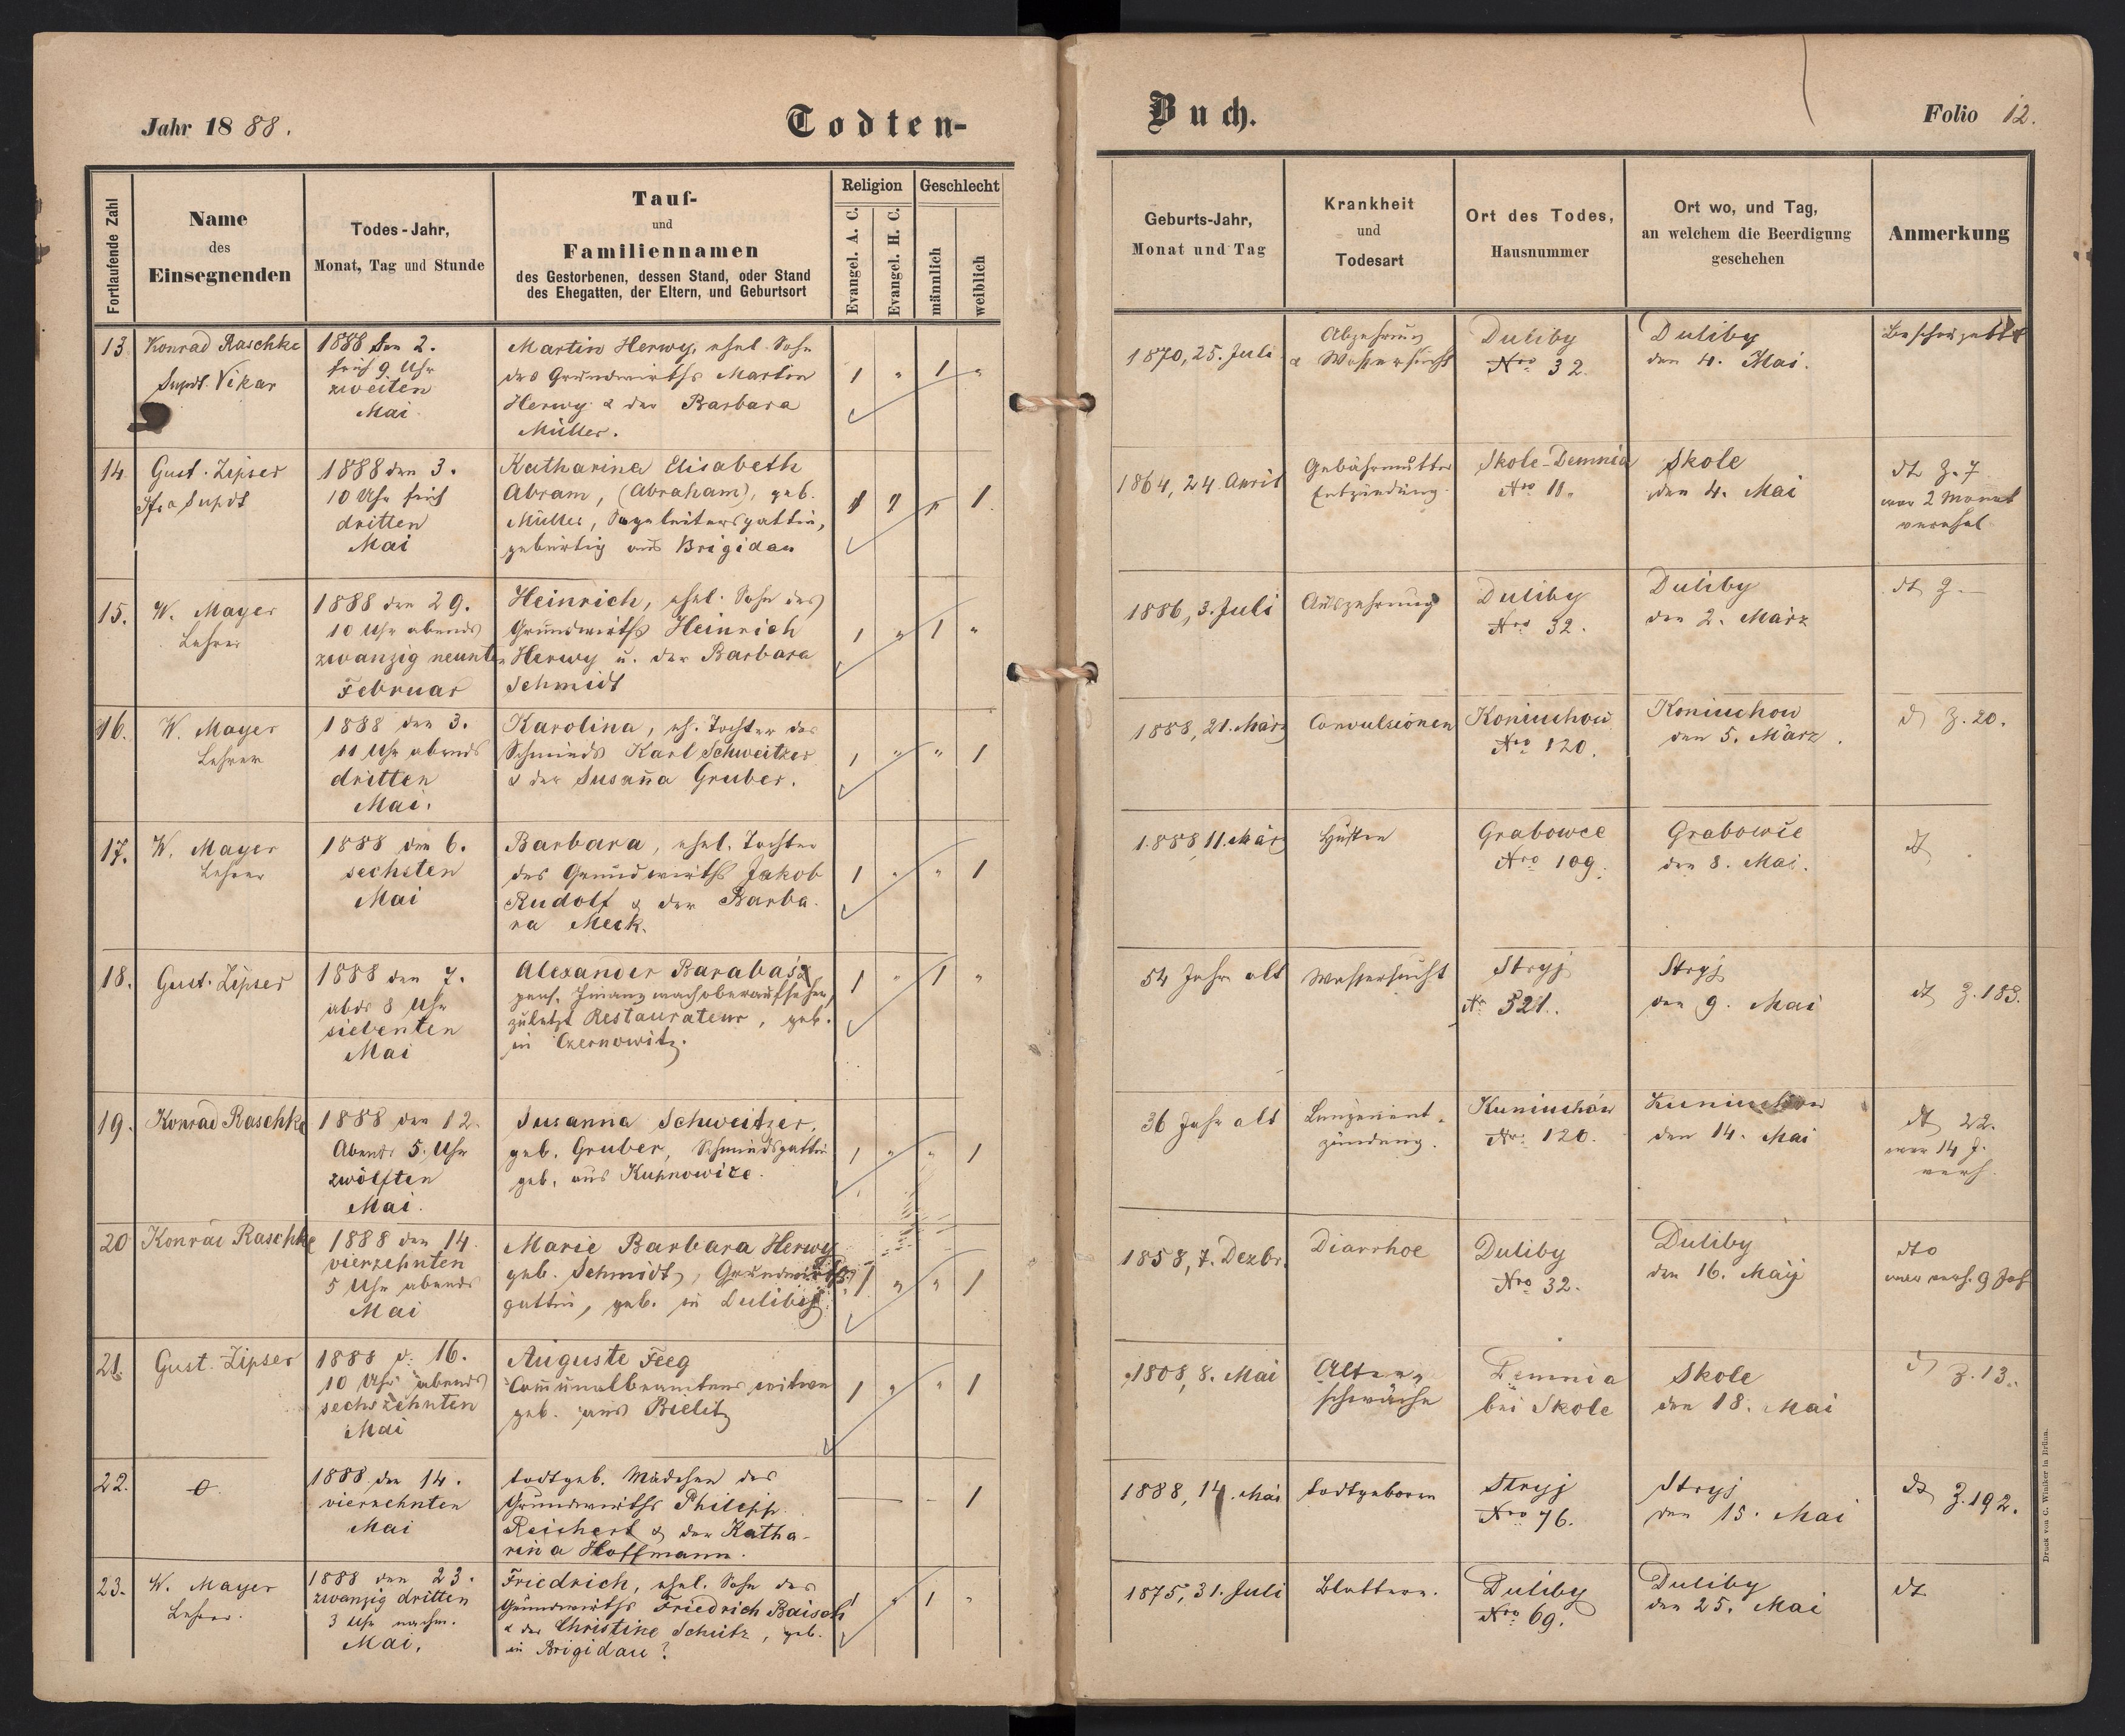 Jahr 1888.
Todten-
Buch.
Folio 12.
Fortlaufende Zahl
Name
des
Einsegnenden
Todes-Jahr,
Monat, Tag und Stunde
Tauf-
und
Familiennamen
des Gestorbenen, dessen Stand, oder Stand
des Ehegatten, der Eltern, und Geburtsort
Religion
Evangel. A. C.
Evangel. H. C.
Geschlecht
männlich
weiblich
Geburts-Jahr,
Monat und Tag
Krankheit
und
Todesart
Ort des Todes,
Hausnummer
Ort wo, und Tag,
an welchem die Beerdigung
geschehen
Anmerkung
13
Konrad Raschke
Supdt. Vikar
1888 den 2.
früh 9 Uhr
zweiten
Mai
Martin Herwy, ehel. Sohn
des Grundwirths Martin
Herwy & der Barbara
Müller.
1 " 1 "
1870, 25. Juli
Abzehrung
& Wassersucht
Duliby
Nro 32.
Duliby
den 4. Mai.
14
Gust. Zipser
1888 den 3.
10 Uhr früh
dritten
Mai
Katharina Elisabeth
Abram, (Abraham), geb.
Müller,
gebürtig aus Brigidau
1
1864, 24 April
Gebährmutter
Entzündung.
Skole-Demnia
Nro 11.
Skole
den 4. Mai
dt Z. 7
war 2 Monat
verehel.
15.
W. Mayer
Lehrer
1888 den 29.
10 Uhr abends
zwanzig neunten
Februar
Heinrich, ehel. Sohn des
Grundwirths Heinrich
Herwy u. der Barbara
Schmidt
1 " 1 "
1886, 3. Juli
Auszehrung
Duliby
Nro 32.
Duliby
den 2. März
dt Z. —
16.
W. Mayer
Lehrer
1888 den 3.
11 Uhr abends
dritten
Mai.
Karolina, eh. Tochter des
Schmieds Karl Schweitzer
& der Susanna Gruber.
1 " " 1
1888, 21. März
Convulsionen
Koniuchow
Nro 120.
Koniuchow
den 5. März.
Z. 20.
17.
W. Mayer
Lehrer
1888 den 6.
sechsten
Mai
Barbara, ehel. Tochter
des Grundwirths Jakob
Rudolf & der Barba-
ra Meck.
1 " " 1
1888 11. März
Husten
Grabowce
Nro 109.
Grabowce
den 8. Mai.
dt
18.
Gust. Zipser
1888 den 7.
abds 8 Uhr
siebenten
Mai
Alexander Barabasz
pens. Finanzwachoberaufseher,
zuletzt Restaurateur, geb.
in Czernowitz.
1 " 1 "
54 Jahr alt
Wassersucht
Stryj
Nr. 321.
Stryj
den 9. Mai
dt Z. 183.
19.
Konrad Raschke
1888 den 12.
Abends 5. Uhr
zwölften
Mai.
Susanna Schweitzer,
geb. Gruber, Schmiedsgattin
geb. aus Kuhnowice.
1 " " 1
36 Jahr alt
Lungenent-
zündung.
Nr. 120.
den 14. Mai
dt 22.
war 14 J.
verh.
20
Konrad Raschke
1888 den 14.
vierzehnten
5 Uhr abends
Mai
Marie Barbara Herwy
geb. Schmidt, Grundwirths-
gattin, geb. in Duliby.
1 " " 1
1858, 7. Dezbr.
Diarrhoe
Duliby
Nro 32.
Duliby
den 16. May
dto
war verh. 9 Jah
21.
Gust. Zipser
1888 d. 16.
10 Uhr abends
sechszehnten
Mai
Auguste Feeg
Communalbeamtens witwe
geb. aus Bielitz
1 " " 1
1808, 8. Mai
Alters-
schwäche
Demnia
bei Skole
Skole
den 18. Mai
Z. 13.
22.
0
1888 den 14.
vierzehnten
Mai
todtgeb. Mädchen des
Grundwirths Philipp
Reichert & der Katha-
rina Hoffmann.
1
1888, 14. Mai
todtgeboren
Stryj
Nro 76.
Stryj
den 15. Mai
dt Z. 192.
23.
W. Mayer
Lehrer.
1888 den 23.
zwanzig dritten
3 Uhr nachm.
Mai.
Friedrich, ehel. Sohn des
Grundwirths Friedrich Baisch
& der Christine Schütz, geb.
in Brigidau?
1 " 1 "
1875, 31. Juli
Blattern.
Duliby
Nro 69.
Duliby
den 25. Mai
dt
Druck von C. Winiker in Brünn.